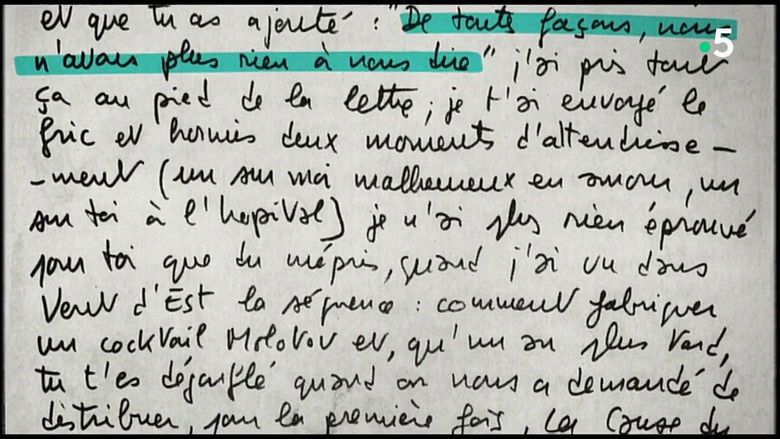 et que tu as ajouté : "De toute façons, nous
n'avons plus rien à nous dire" j'ai pris tout
ça au pied de la lettre ; je t'ai envoyé le
fric et hormis deux moments d'attendrisse –
– ment (un sur moi malheureux en amour, un
sur toi à l'hopital) je n'ai plus rien éprouvé
pour toi que du mépris, quand j'ai vu dans
Vent d'Est la séquence : comment fabriquer
un cocktail Molotov et, qu'un an plus tard,
tu t'es dégonflé quand on nous a demandé de
distribuer, pour la première fois, La Cause du
5